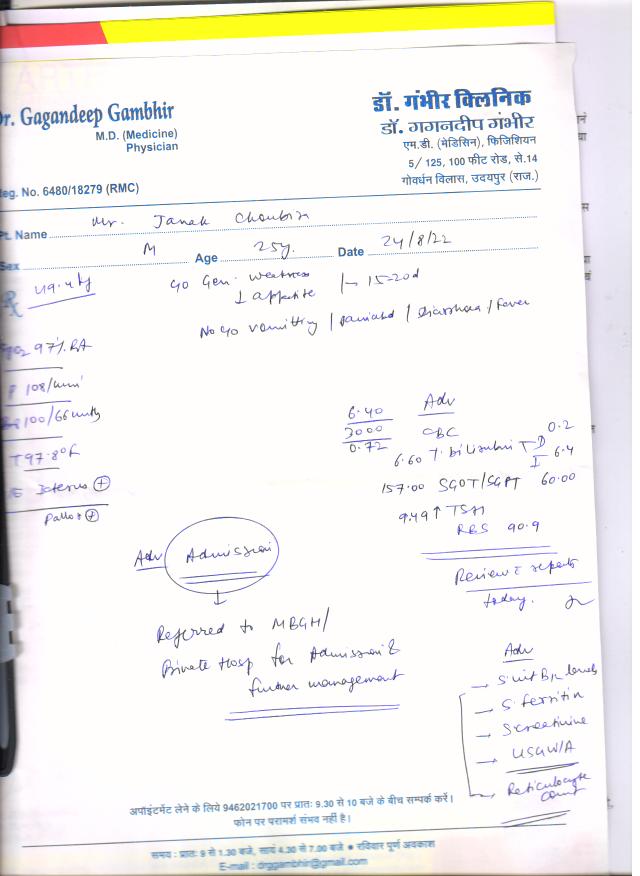 Dr. Gagandeep Gambhir
M.D. (Medicine)
Physician
Reg. No. 6480/18279 (RMC)
डॉ. गंभीर क्लिनिक
डॉ. गगनदीप गंभीर
एम.डी. (मेडिसिन), फिजिशियन
5/ 125, 100 फीट रोड, से.14
गोवर्धन विलास, उदयपुर (राज.)
Pt. Name Mr. Janak
Sex M Age 25y. Date 24/8/22
49.4 kg
c/o Gen. weakness
↓ appetite
15-20d
No c/o vomitting / / Diarrhoea / Fever
SpO2 97% RA
P 108/min
BP 100/66 mmHg
T 97.8°F
Icterus +
Pallor +
Adv
6.40
3000
0.72
CBC
6.60 T. bilirubin T D 0.2
I 6.4
157.00 SGOT/SGPT 60.00
9.49 ↑ TSH
RBS 90.9
Review c reports
today.
Adv Admission
↓
Referred to MBGH/
Private Hosp for Admission &
further management
Adv
→ S. vit B12 levels
→ S. ferritin
→ S. creatinine
→ USG W/A
→ Reticulocyte
count
अपॉइंटमेंट लेने के लिये 9462021700 पर प्रातः 9.30 से 10 बजे के बीच सम्पर्क करें।
फोन पर परामर्श संभव नहीं है।
समय : प्रातः 9 से 1.30 बजे, सायं 4.30 से 7.00 बजे ● रविवार पूर्ण अवकाश
E-mail : drggambhir@gmail.com